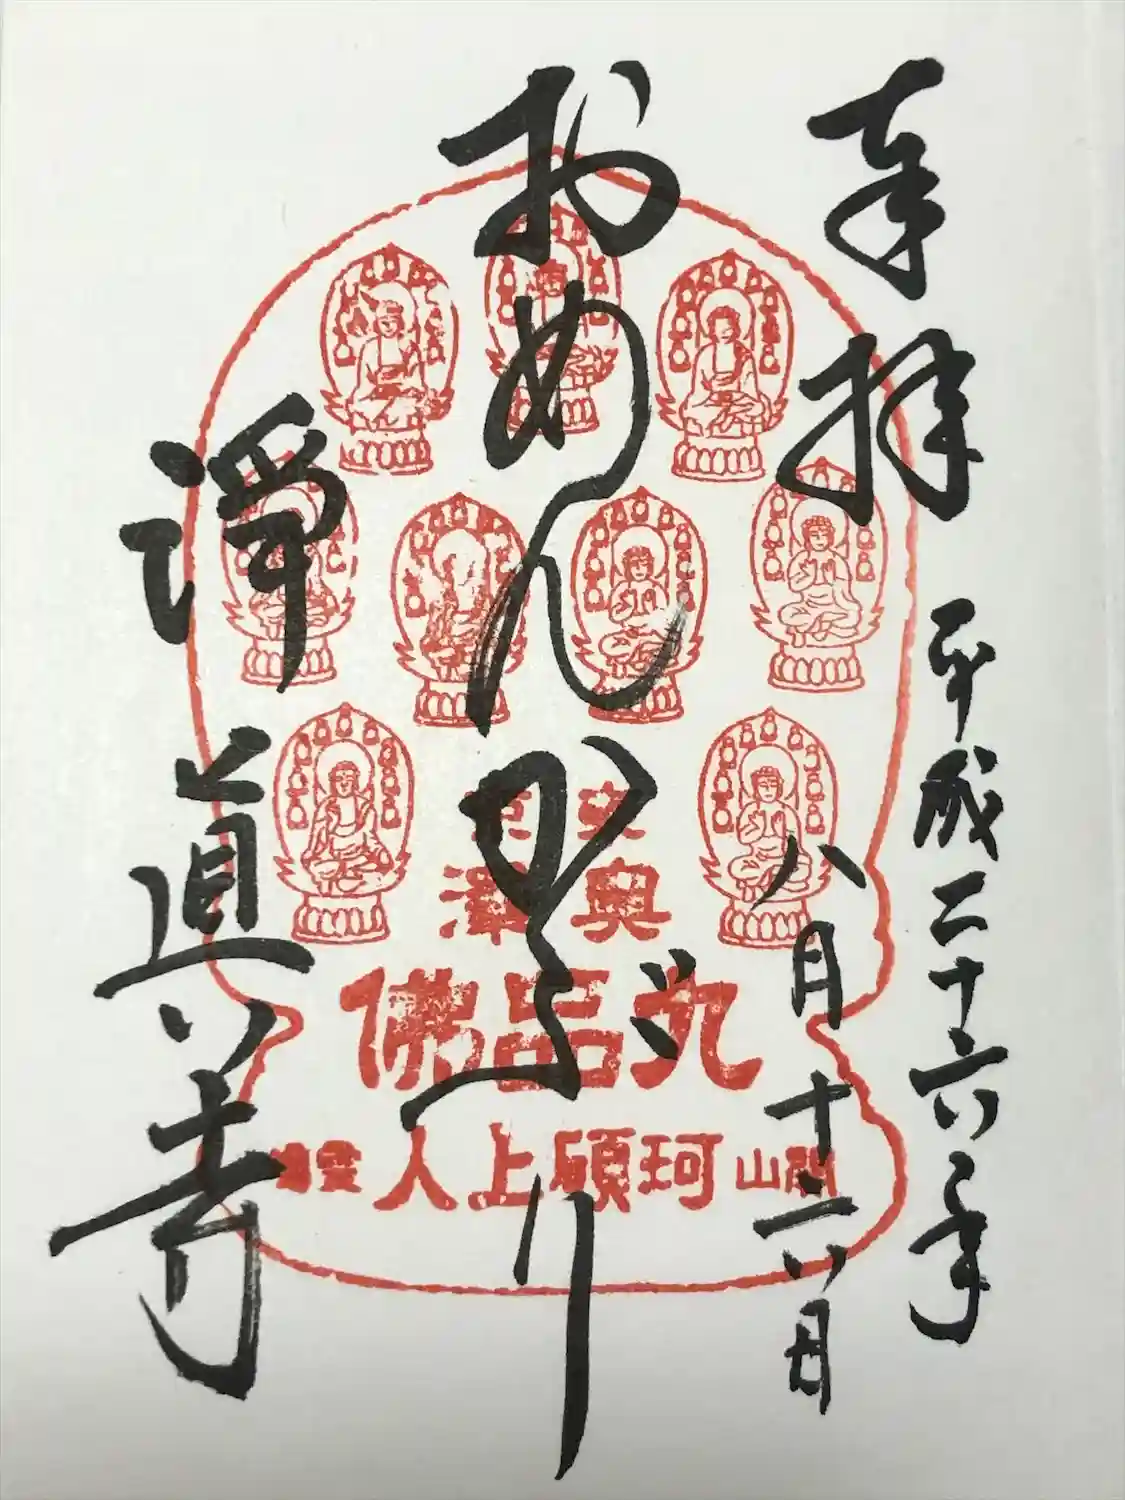 奉拝
平成二十六年
八月十六日
おめんかぶり
淨真寺
東京
奥澤
九品佛
開山珂碩上人靈